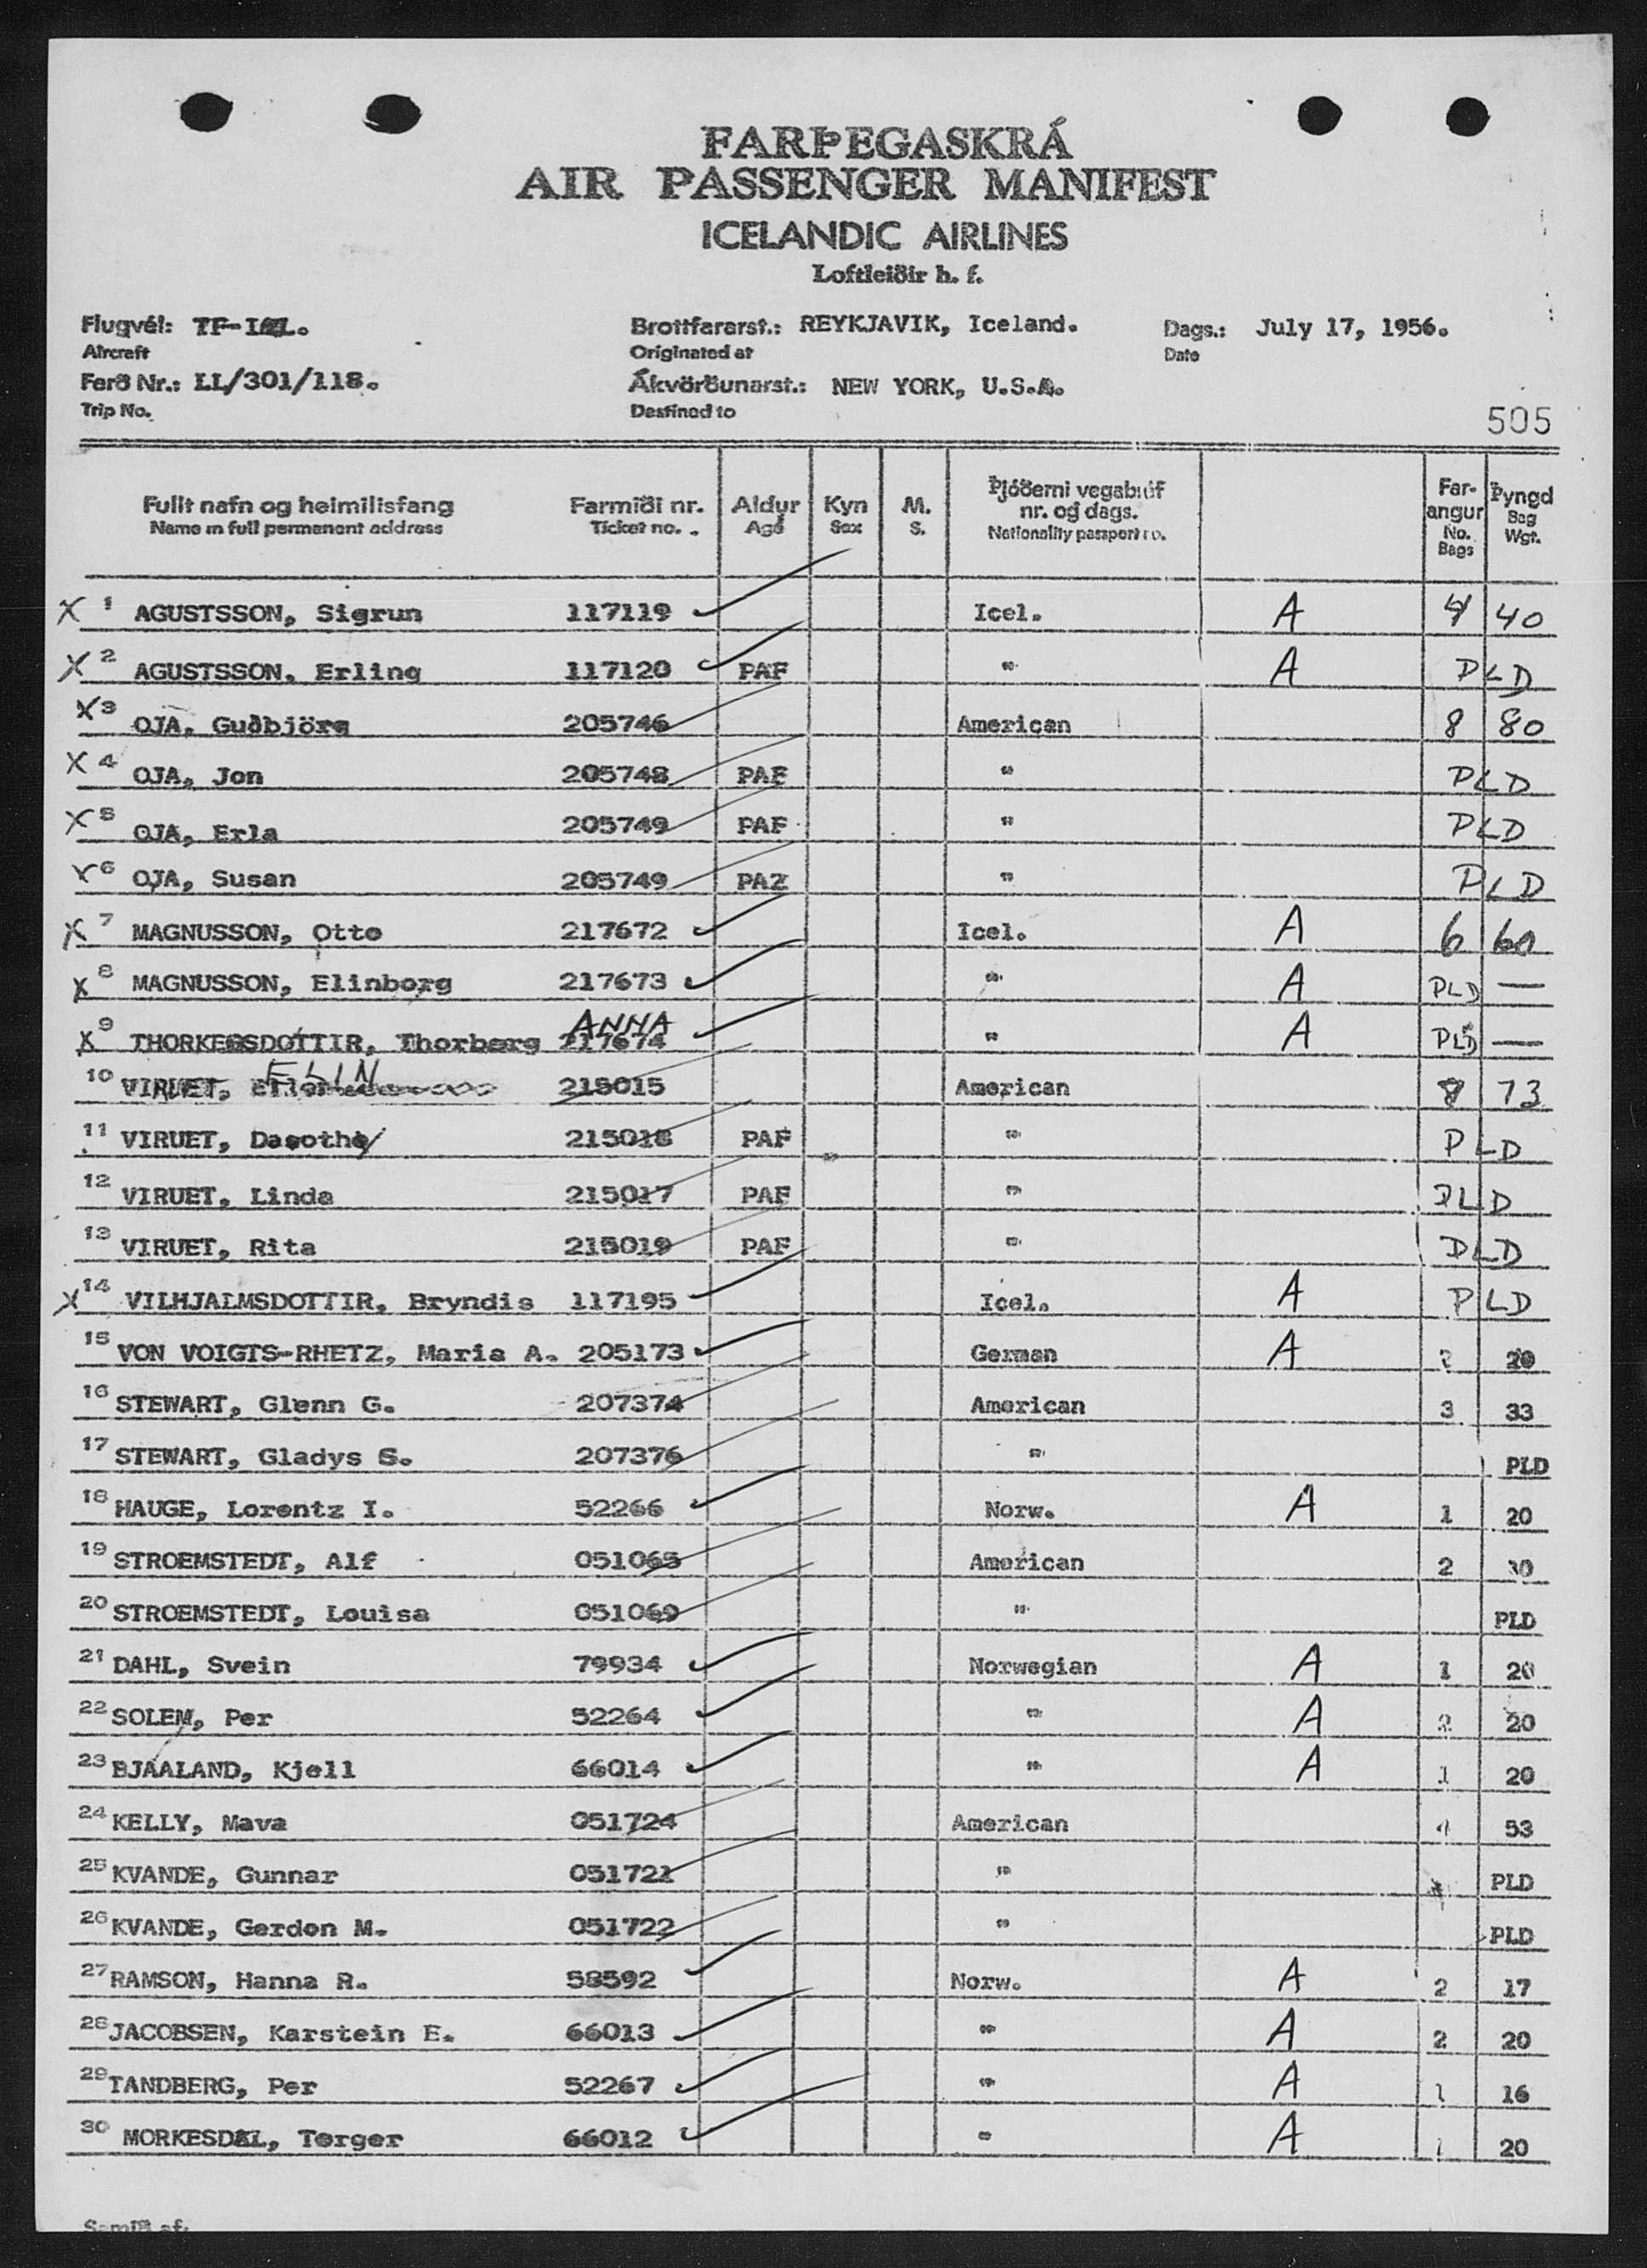 FARÞEGASKRÁ
AIR PASSENGER MANIFEST
ICELANDIC AIRLINES
Loftleiðir h. f.
Flugvél: Brottfararst.: REYKJAVIK, Iceland. Dags.: July 17, 1956.
Aircraft Originated at Date
Ferð Nr.: LL/301/118. Ákvörðunarst.: NEW YORK, U.S.A.
Trip No. Destined to
505
Fullt nafn og heimilisfang Farmiði nr. Aldur Kyn M. Þjóðerni vegabréf nr. og dags. Farangur Þyngd
Name in full permanent address Ticket no. Age Sex S. Nationality passport no. No. Bags Bag Wgt.
X 1 AGUSTSSON, Sigrun 117119 Icel. A 4 40
X 2 AGUSTSSON, Erling 117120 PAF " A PLD
X 3 OJA, Guðbjörg 205746 American 8 80
X 4 OJA, Jon 205748 PAF " PLD
X 5 OJA, Erla 205749 PAF " PLD
X 6 OJA, Susan 205749 PAZ " PLD
X 7 MAGNUSSON, Otto 217672 Icel. A 6 60
X 8 MAGNUSSON, Elinborg 217673 " A PLD —
ANNA
X 9 THORKEGSDOTTIR, Thorberg 217674 " A PLD —
ELIN
10 VIRUET, 215015 American 8 73
11 VIRUET, 215018 PAF " PLD
12 VIRUET, Linda 215017 PAF " PLD
13 VIRUET, Rita 215019 PAF " PLD
X 14 VILHJALMSDOTTIR, Bryndis 117195 Icel. A PLD
15 VON VOIGTS-RHETZ, Maria A. 205173 German A 2 20
16 STEWART, Glenn G. 207374 American 3 33
17 STEWART, Gladys S. 207376 " PLD
18 HAUGE, Lorentz I. 52266 Norw. A 1 20
19 STROEMSTEDT, Alf 051065 American 2
20 STROEMSTEDT, Louisa 051069 " PLD
21 DAHL, Svein 79934 Norwegian A 1 20
22 SOLEM, Per 52264 " A 2 20
23 BJAALAND, Kjell 66014 " A 1 20
24 KELLY, Mava 051724 American 53
25 KVANDE, Gunnar 051721 " PLD
26 KVANDE, Gerdon M. 051722 " PLD
27 RAMSON, Hanna R. 58592 Norw. A 2 17
28 JACOBSEN, Karstein E. 66013 " A 2 20
29 TANDBERG, Per 52267 " A 1 16
30 MORKESDAL, Torger 66012 " A 1 20